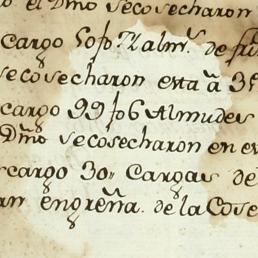 o el D̃mo Secosecharon
cargo 50f̃ 7½ alms. de fri
secosecharon esta ã 3
cargo 99 f̃ 6 Almudes
D̃mo Secosecharon en es
cargo 30" Cargas de
an engreña. de la Cose